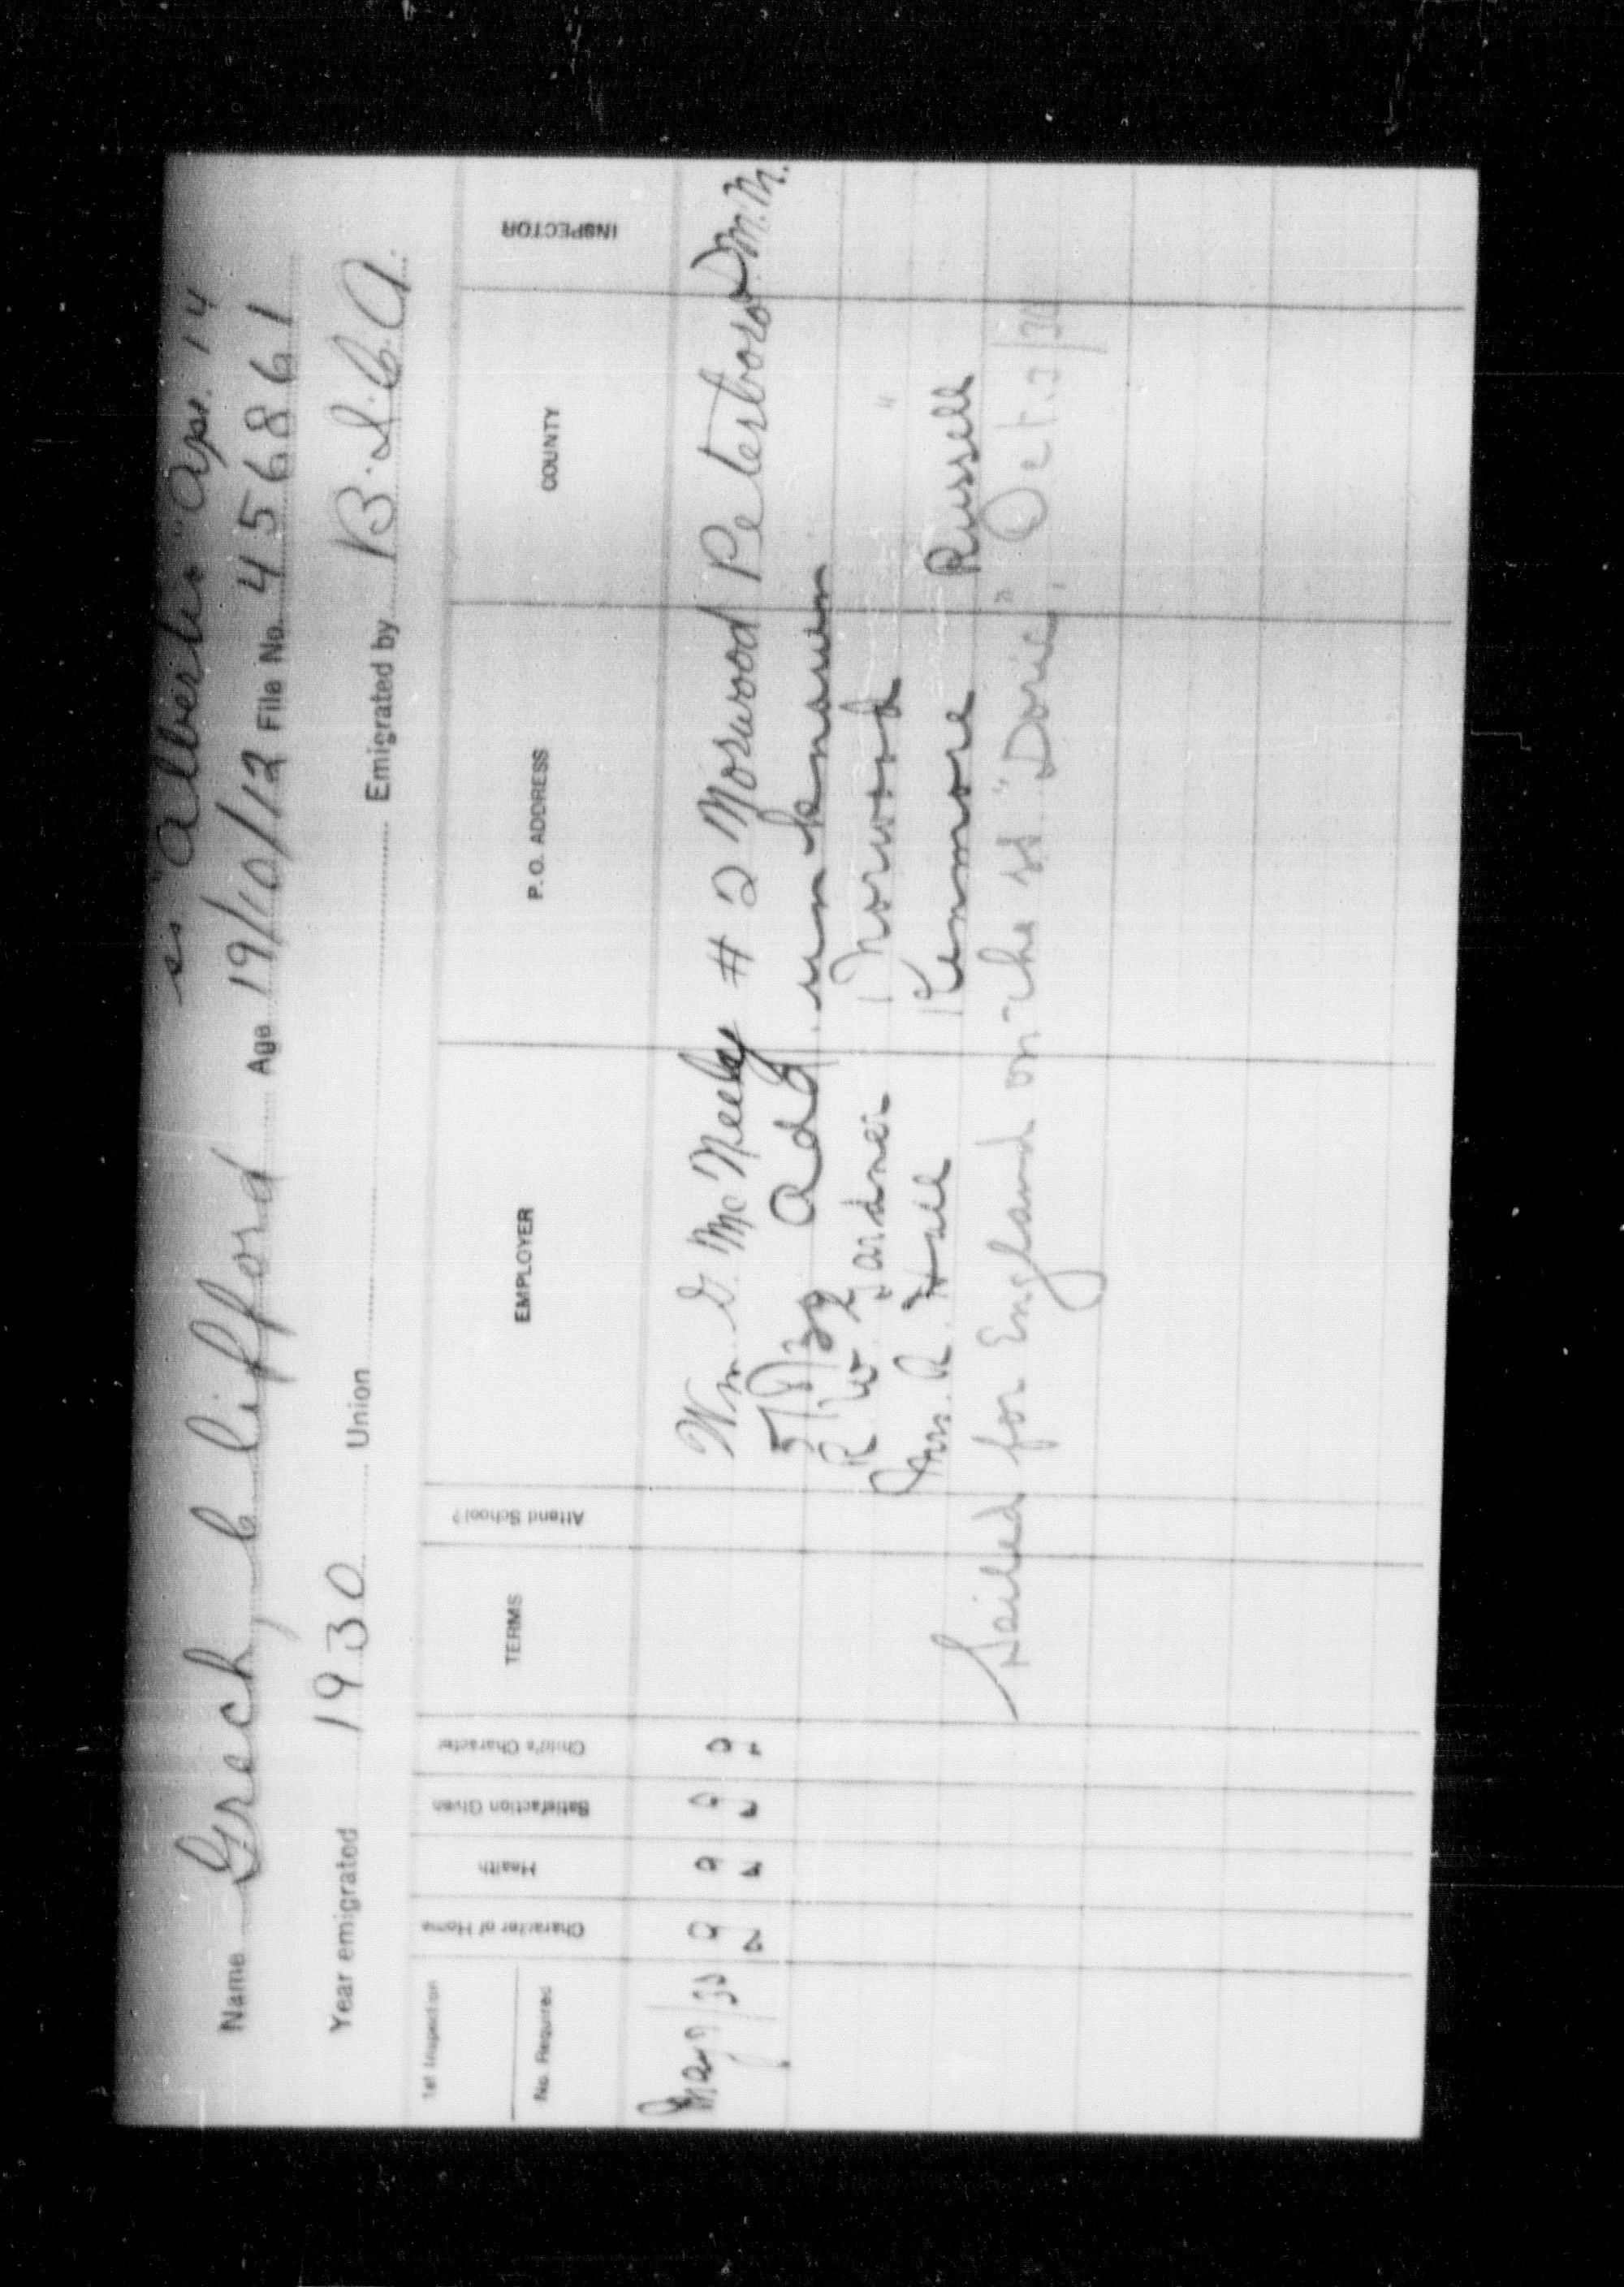 ss "Albertic" Apr. 14
Name Grech, Clifford Age 19/10/12 File No. 456861
Year emigrated 1930 Union Emigrated by B.I.C.A.
1st Inspection No. Required Character of Home Health Satisfaction Given Child's Character TERMS Attend School? EMPLOYER P. O. ADDRESS COUNTY INSPECTOR
May 7/30 g g g g Wm G. McNeely # 2 Norwood Peterboro D.M.M.
5/8/32 add. unknown
R W Gardner Norwood "
Mrs. A. Hall Kenmore Russell
Sailed for England on the ss. "Doric", Oct.